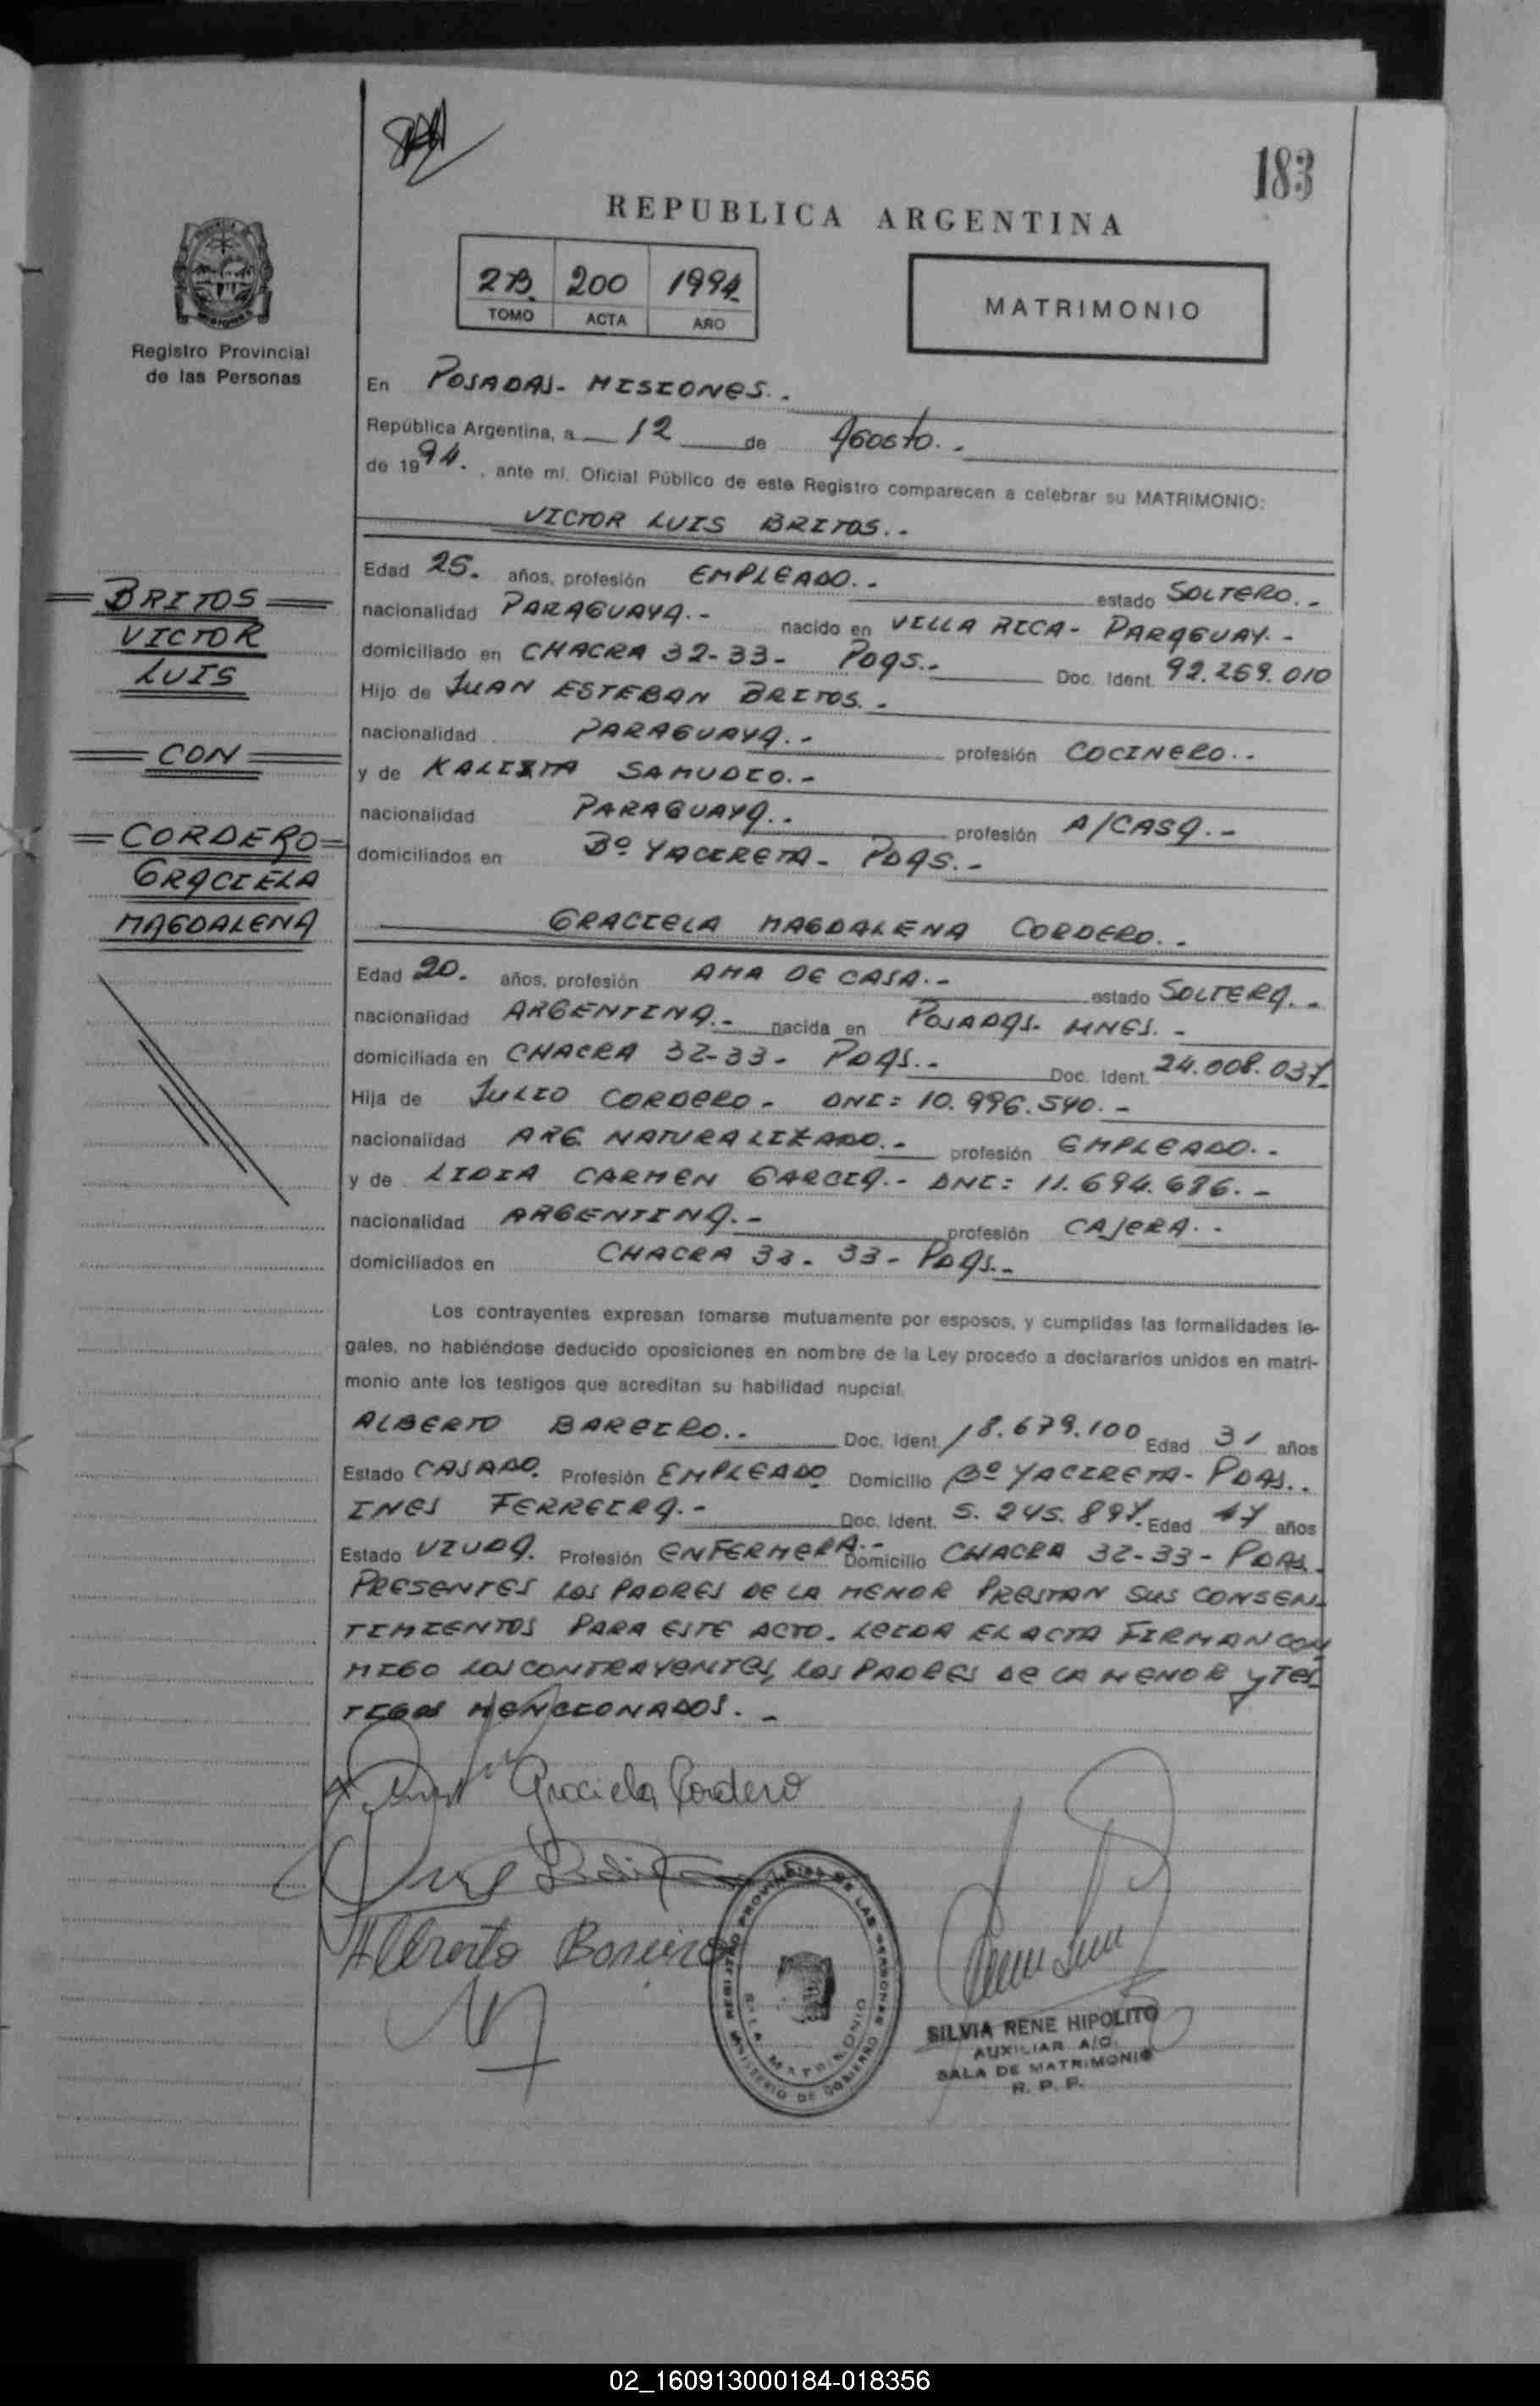 183
REPUBLICA ARGENTINA
2B. 200 1994.
TOMO ACTA AÑO
MATRIMONIO
Registro Provincial
de las Personas
En POSADAS- MISIONES..
República Argentina, a 12 de AGOSTO..
de 1994. , ante mí, Oficial Público de este Registro comparecen a celebrar su MATRIMONIO:
VICTOR LUIS BRITOS..
Edad 25. años, profesión EMPLEADO.. estado SOLTERO..
nacionalidad PARAGUAYA.- nacido en VILLA RICA- PARAGUAY.-
domiciliado en CHACRA 32-33- PDAS.. Doc. Ident. 92.269.010
Hijo de JUAN ESTEBAN BRITOS..
nacionalidad PARAGUAYA.. profesión COCINERO..
y de KALIXTA SAMUDIO.-
nacionalidad PARAGUAYA.. profesión A/CASA.-
domiciliados en Bº YACIRETA- PDAS.-
BRITOS
VICTOR
LUIS
CON
CORDERO
GRACIELA
MAGDALENA
GRACIELA MAGDALENA CORDERO..
Edad 20. años, profesión AMA DE CASA.- estado SOLTERA..
nacionalidad ARGENTINA.- nacida en POSADAS- MNES.-
domiciliada en CHACRA 32-33- PDAS.. Doc. Ident. 24.008.037
Hija de JULIO CORDERO- DNI: 10.996.540.-
nacionalidad ARG. NATURALIZADO.- profesión EMPLEADO..
y de LIDIA CARMEN GARCIA.- DNI: 11.694.686.-
nacionalidad ARGENTINA.- profesión CAJERA..
domiciliados en CHACRA 32- 33- PDAS..
Los contrayentes expresan tomarse mutuamente por esposos, y cumplidas las formalidades le-
gales, no habiéndose deducido oposiciones en nombre de la Ley procedo a declararlos unidos en matri-
monio ante los testigos que acreditan su habilidad nupcial.
ALBERTO BAREIRO.. Doc. Ident. 18.679.100 Edad 31 años
Estado CASADO. Profesión EMPLEADO Domicilio Bº YACIRETA- PDAS..
INES FERREIRA.- Doc. Ident. 5.245.897. Edad 47 años
Estado VIUDA. Profesión ENFERMERA.- Domicilio CHACRA 32-33- PDAS.
PRESENTES LOS PADRES DE LA MENOR PRESTAN SUS CONSEN-
TIMIENTOS PARA ESTE ACTO. LEIDA EL ACTA FIRMAN CON
MIGO LOS CONTRAYENTES, LOS PADRES DE LA MENOR y TES-
TIGOS MENCIONADOS.-
Graciela Cordero
Alberto Bareiro
REGISTRO PROVINCIAL DE LAS PERSONAS
SALA MATRIMONIO
MINISTERIO DE GOBIERNO
SILVIA RENE HIPOLITO
AUXILIAR A/C.
SALA DE MATRIMONIO
R. P. P.
02_160913000184-018356